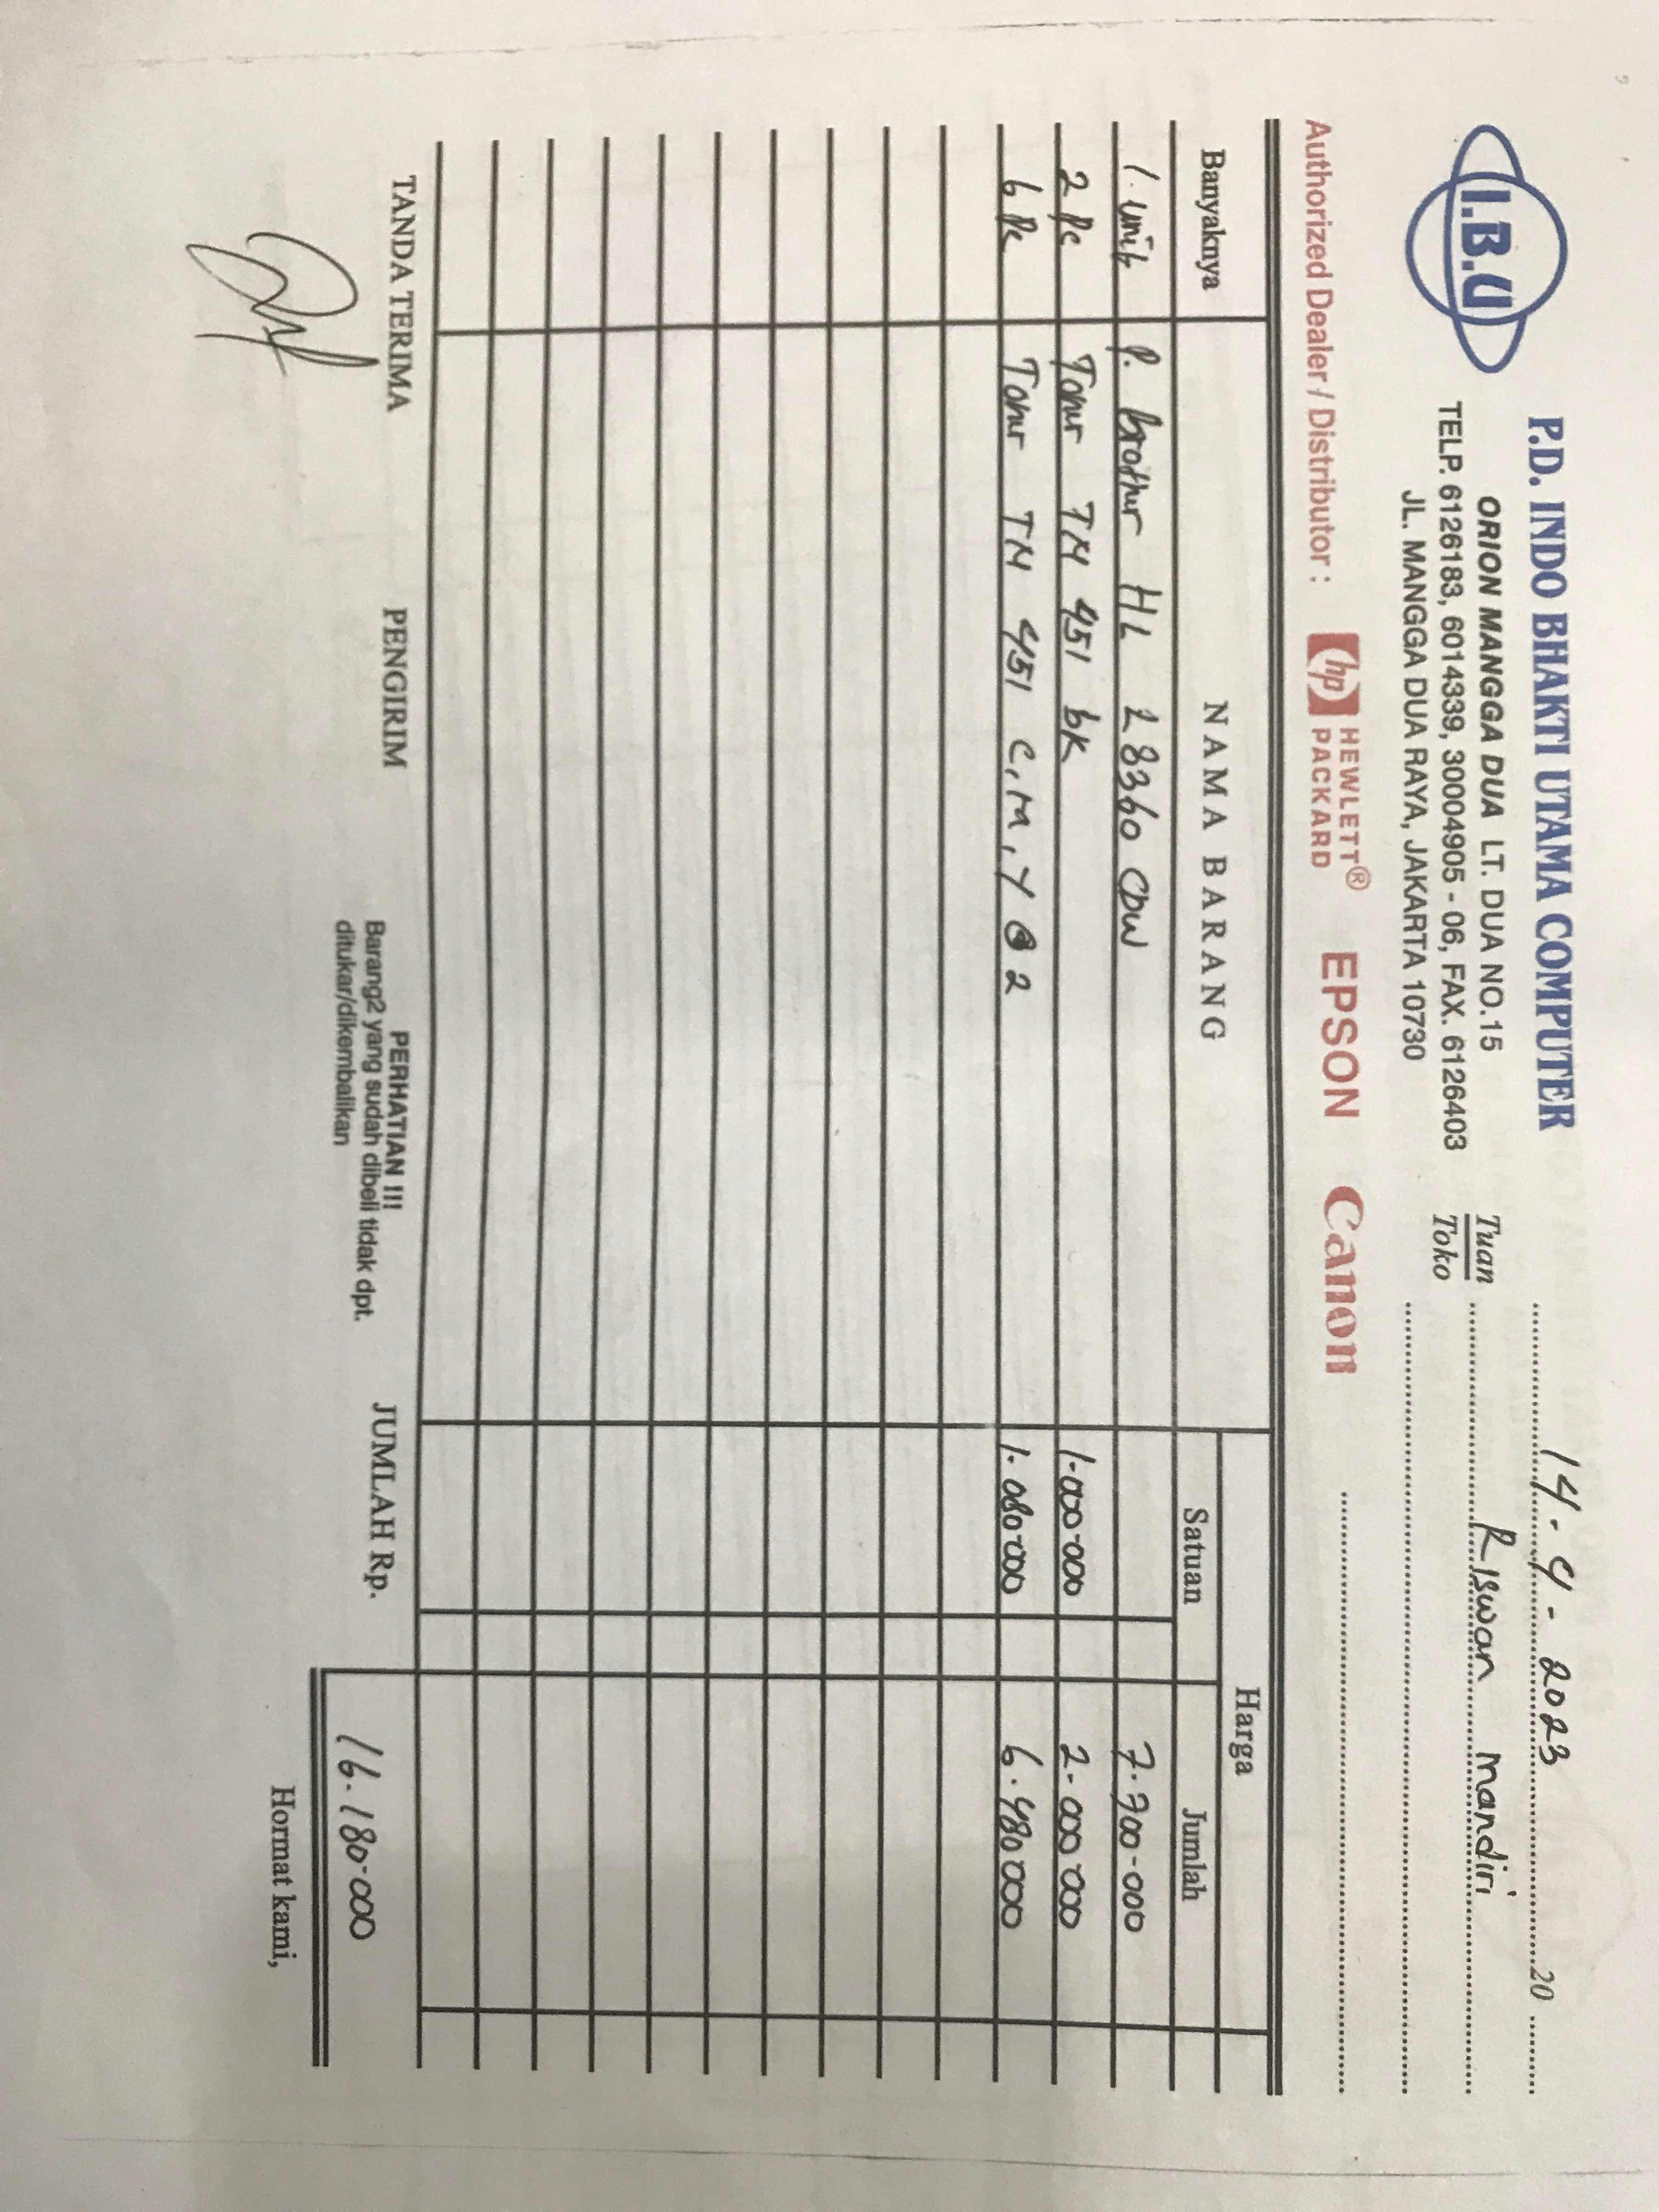 I.B.U
P.D. INDO BHAKTI UTAMA COMPUTER
ORION MANGGA DUA LT. DUA NO.15
TELP. 6126183, 6014339, 30004905 - 06, FAX. 6126403
JL. MANGGA DUA RAYA, JAKARTA 10730
14-4-2023 20
Tuan Riswan mandiri
Toko
Authorized Dealer / Distributor : hp HEWLETT® PACKARD EPSON Canon
Banyaknya NAMA BARANG Harga
Satuan Jumlah
1. unit P. Brother HL L 8360 CDW 7.700-000
2 Pc Toner TN 451 bk 1-000-000 2-000 000
6 Pc Toner TN 451 C, M, Y @ 2 1. 080-000 6.480 000
TANDA TERIMA PENGIRIM
PERHATIAN !!!
Barang2 yang sudah dibeli tidak dpt.
ditukar/dikembalikan
JUMLAH Rp. 16.180-000
Hormat kami,